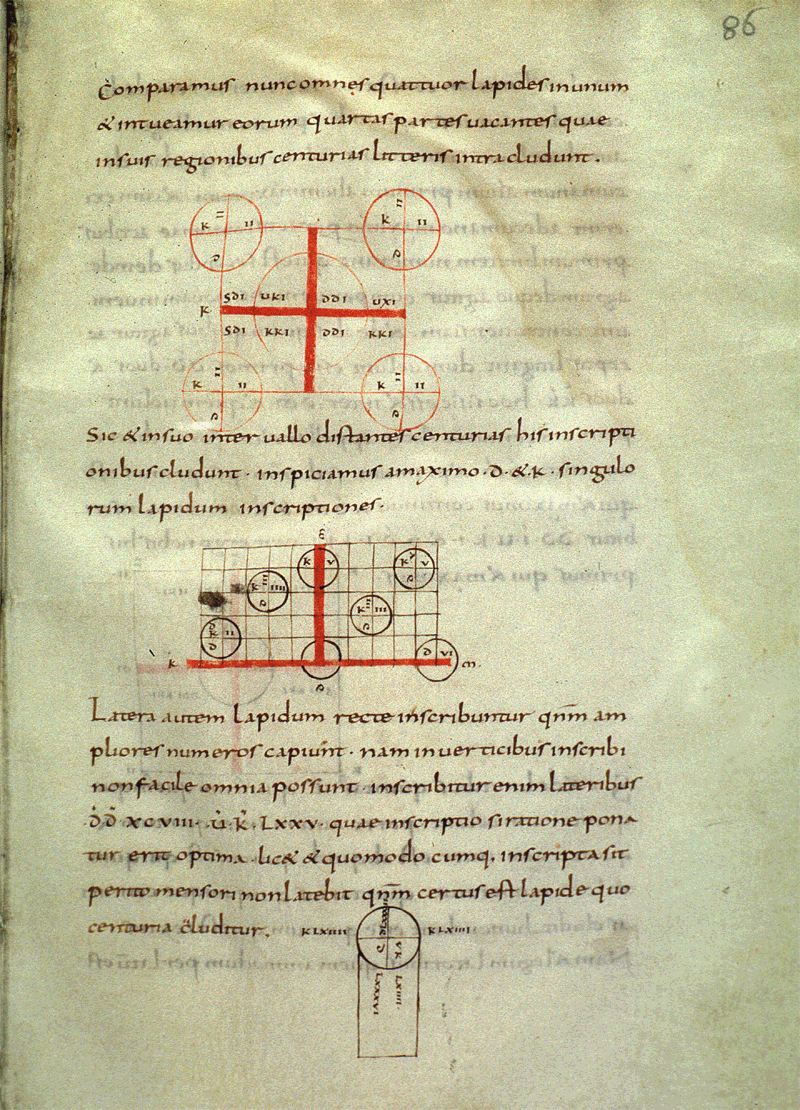 86
Comparamus nunc omnes quattuor lapides in unum
& intueamur eorum quartas partes uacantes quae
in suis regionibus centurias litteris intra cludunt.
K II
K II
D
D
SDI UKI DDI UXI
K
SDI KKI DDI KKI
K II
K II
D
D
Sic & in suo inter uallo distantes centurias his inscripti
onibus cludunt · inspiciamus a maximo · D · & · K · singulo
rum lapidum inscriptiones ·
K V
K V
K IIII
K III
K II
D
K
D VI
m
Latera autem lapidum recte inscribuntur qnm am
pliores numeros capiunt · nam in uerticibus inscribi
non facile omnia possunt · inscribitur enim lateribus
D D XCVIII · U K · LXXV · quae inscriptio si ratione pona
tur erit optima · lic& & quomodo cumq, inscripta sit
perito mensori non latebit qnm certus est lapide quo
centuria cluditur.
K LXIIII
K LXIIII
V K
LXXXVI
LXIIII